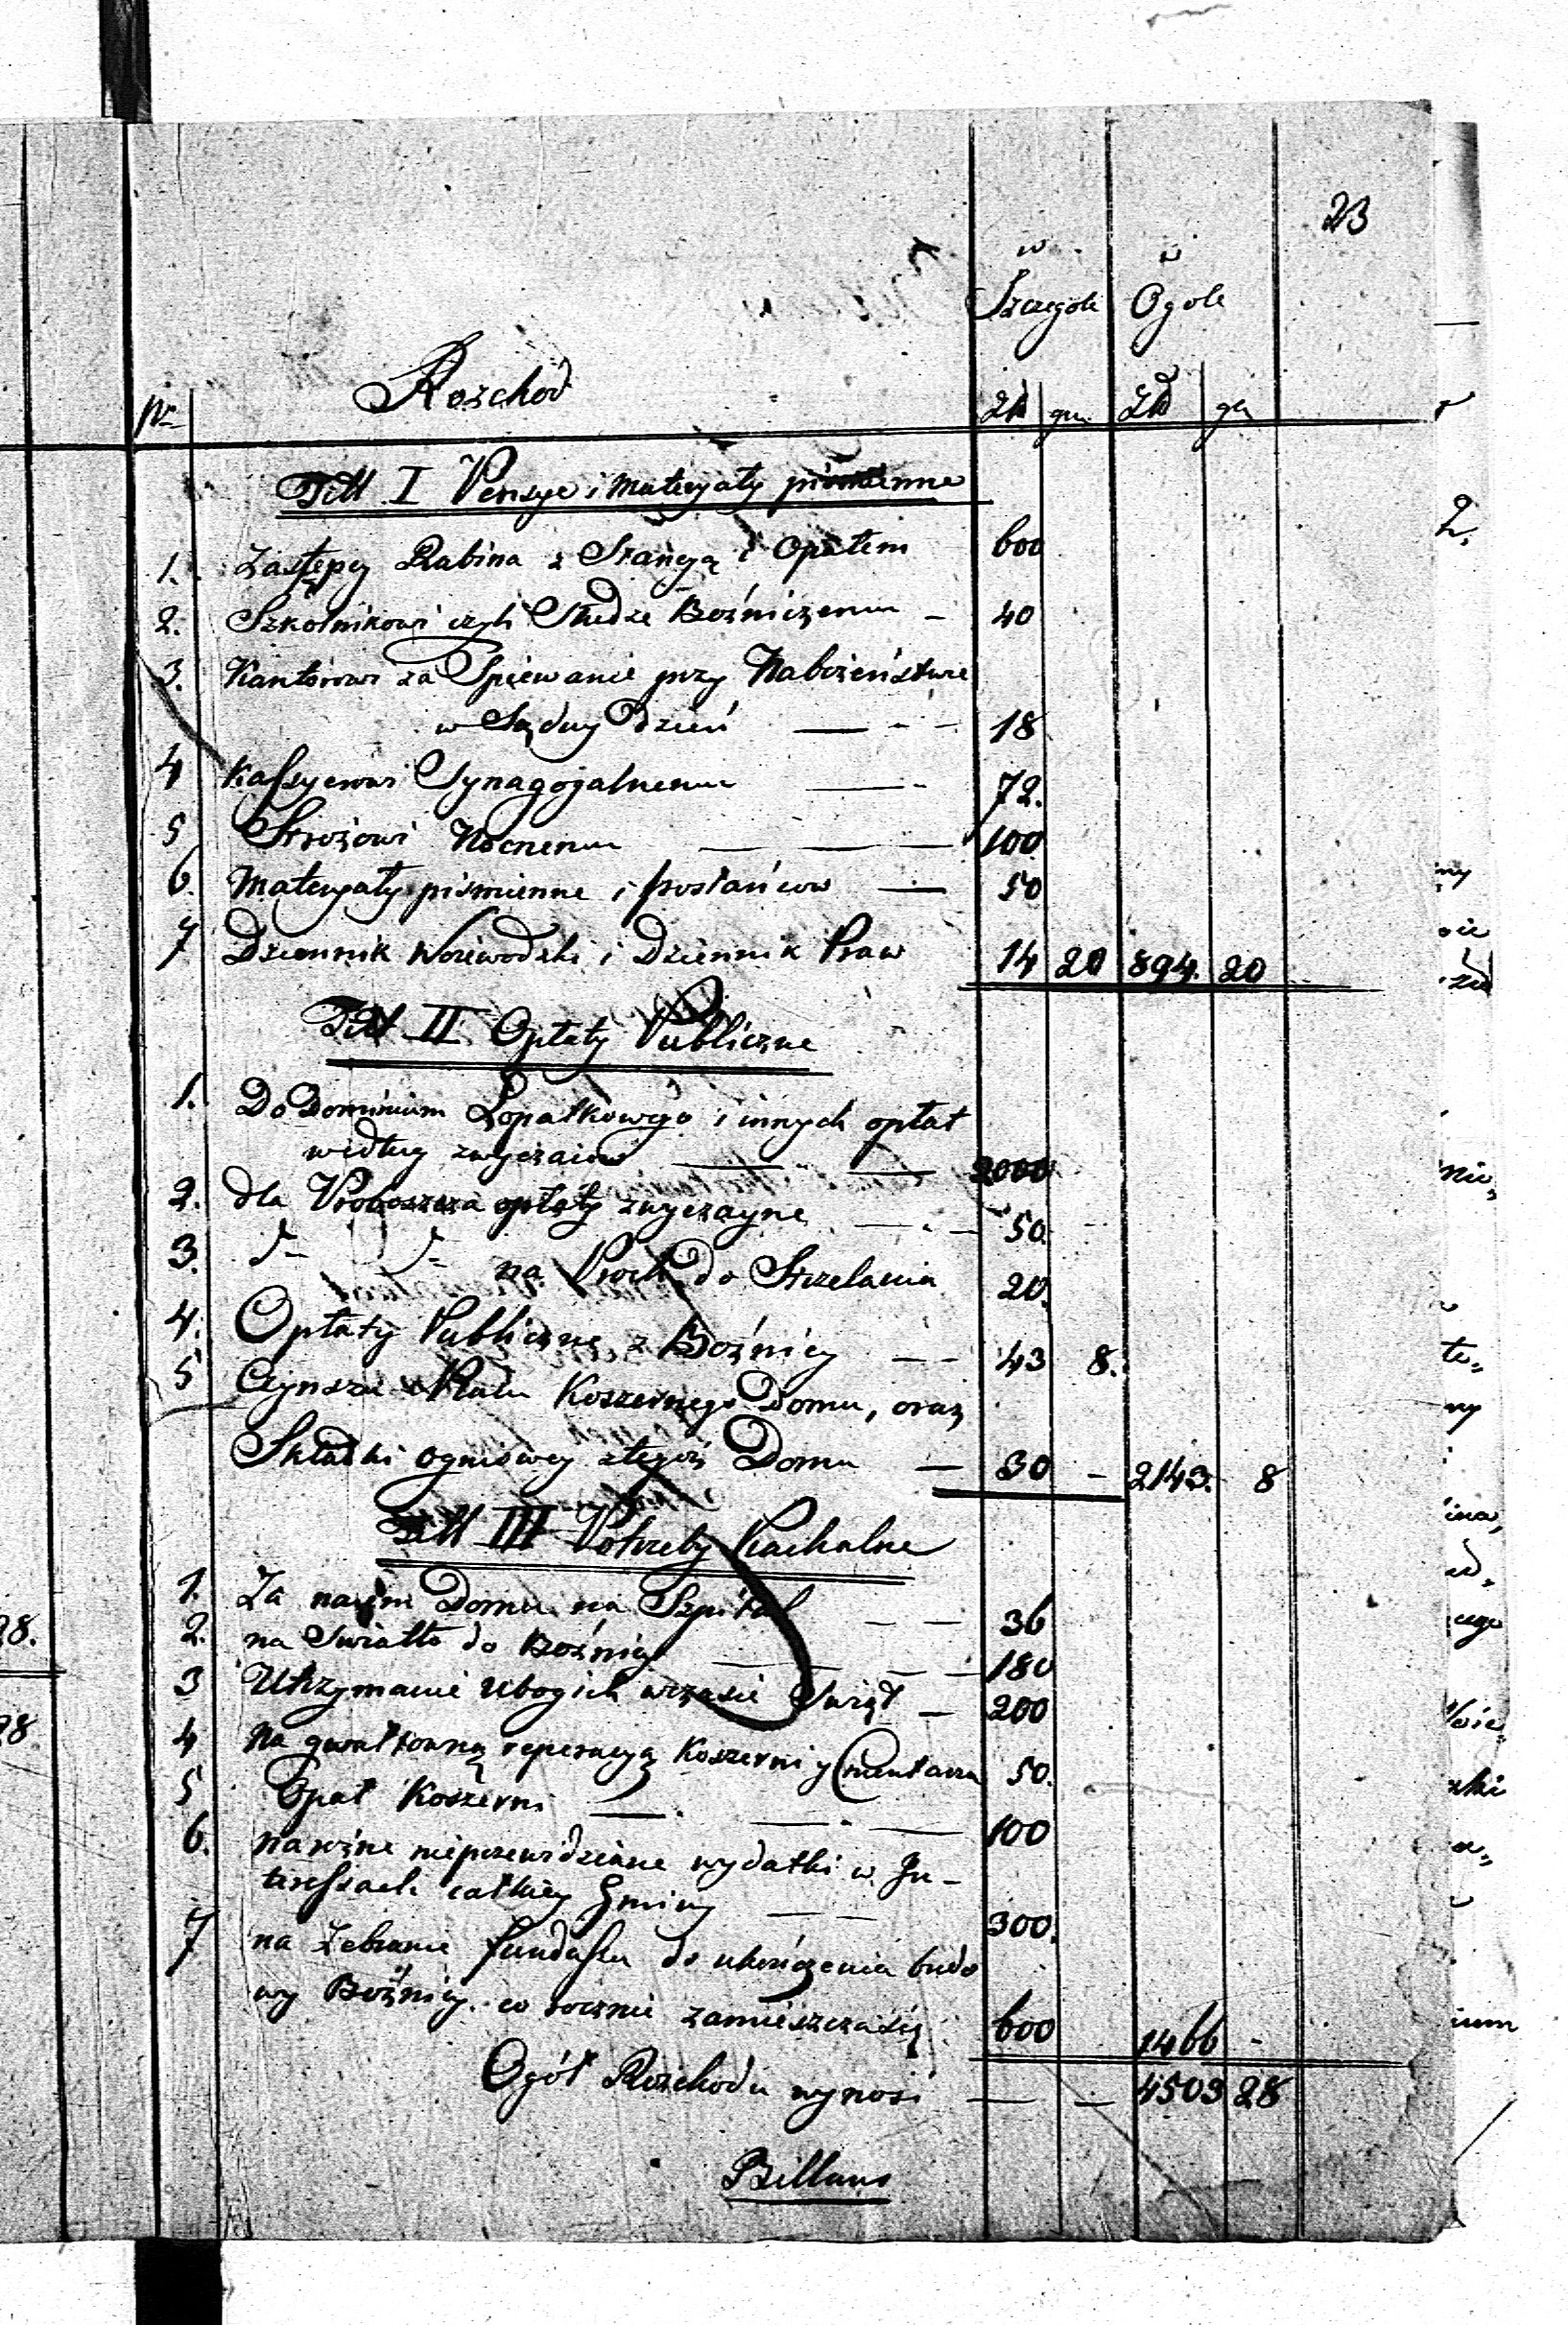 23
w w
Szczegole Ogole
Nr Rozchod Zł gr Zł gr
Titt I Pensye i Materyały piśmienne
1. Zastępcy Rabina z Stancyą i Opałem 600
2. Szkolnikowi czyli Słudze Bożniczemu — 40
3. Kantorowi za Spiewanie przy Nabożeństwie
w Sądny Dzień — - - 18
4 Kassyerowi Synagogalnemu — 72.
5 Stróżowi Nocnemu — — — 100
6. Materyały piśmienne i posłańcow — 50
7 Dziennik Woiewodzki i Dziennik Praw 14 20 894. 20
Titt II Opłaty Publiczne
1. Do Dominium Łopatkowego i innych opłat
według zwyczaiow — — 2000
2. dla Proboszcza opłaty zwyczayne — - — 50.
3. d- d- na Proch do Strzelania 20.
4. Opłaty Publiczne z Bożnicy — — 43 8.
5 Czynszu Placu Koszernego Domu, oraz
Składki ogniowey z tegoż Domu — 30 - 2143. 8
Titt III Potrzeby Kachalne
1. Za naiem Domu na Szpital — — 36
2. na Swiatło do Bożnicy — — — 180
3 Utrzymanie Ubogich w czasie Swiąt — 200
4 Na gwałtowną reperacyą Koszerni y Cmentarza 50.
5 Opał Koszerni — . — . — 100
6. na rożne nieprzewidziane wydatki w In-
teressach całkiey Gminy — — 300.
7 na Zebranie fundussu do ukończenia budo
wy Bożnicy co rocznie zamieszcza się 600 1466 -
Ogół Rozchodu wynosi — — 4503 28
Billans